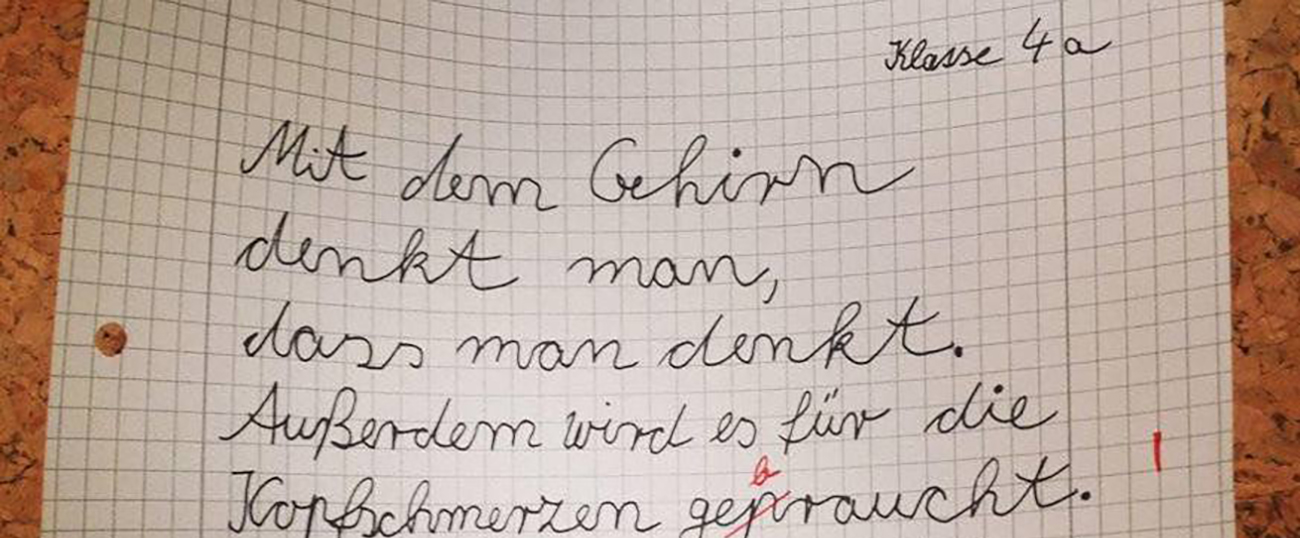 Klasse 4a
Mit dem Gehirn
denkt man,
dass man denkt.
Außerdem wird es für die
b
Kopfschmerzen gepraucht.